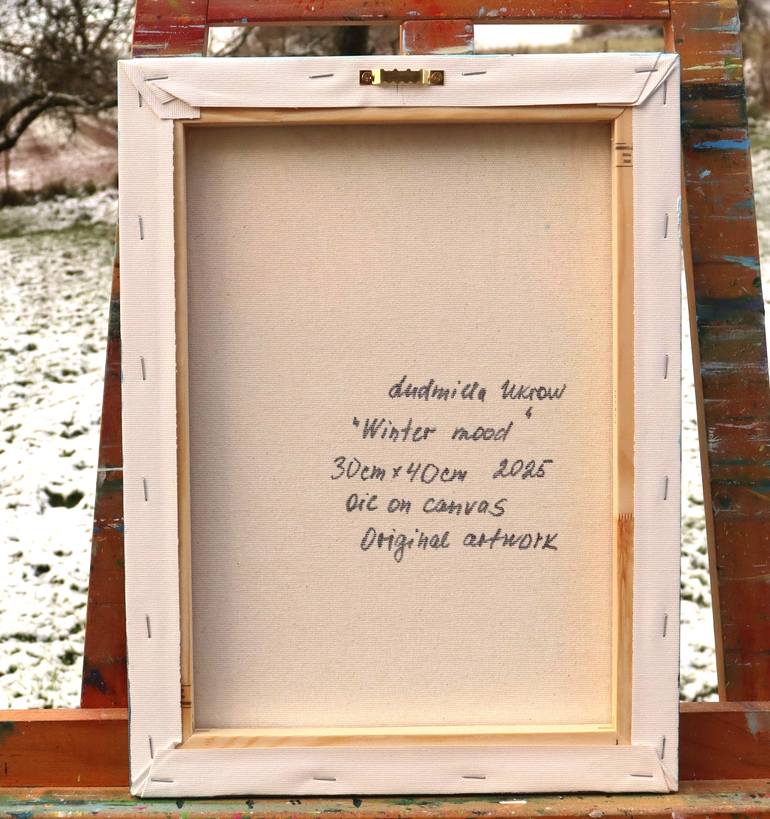 Ludmilla Ukrow
"Winter mood"
30cm x 40cm 2025
Oil on canvas
Original artwork